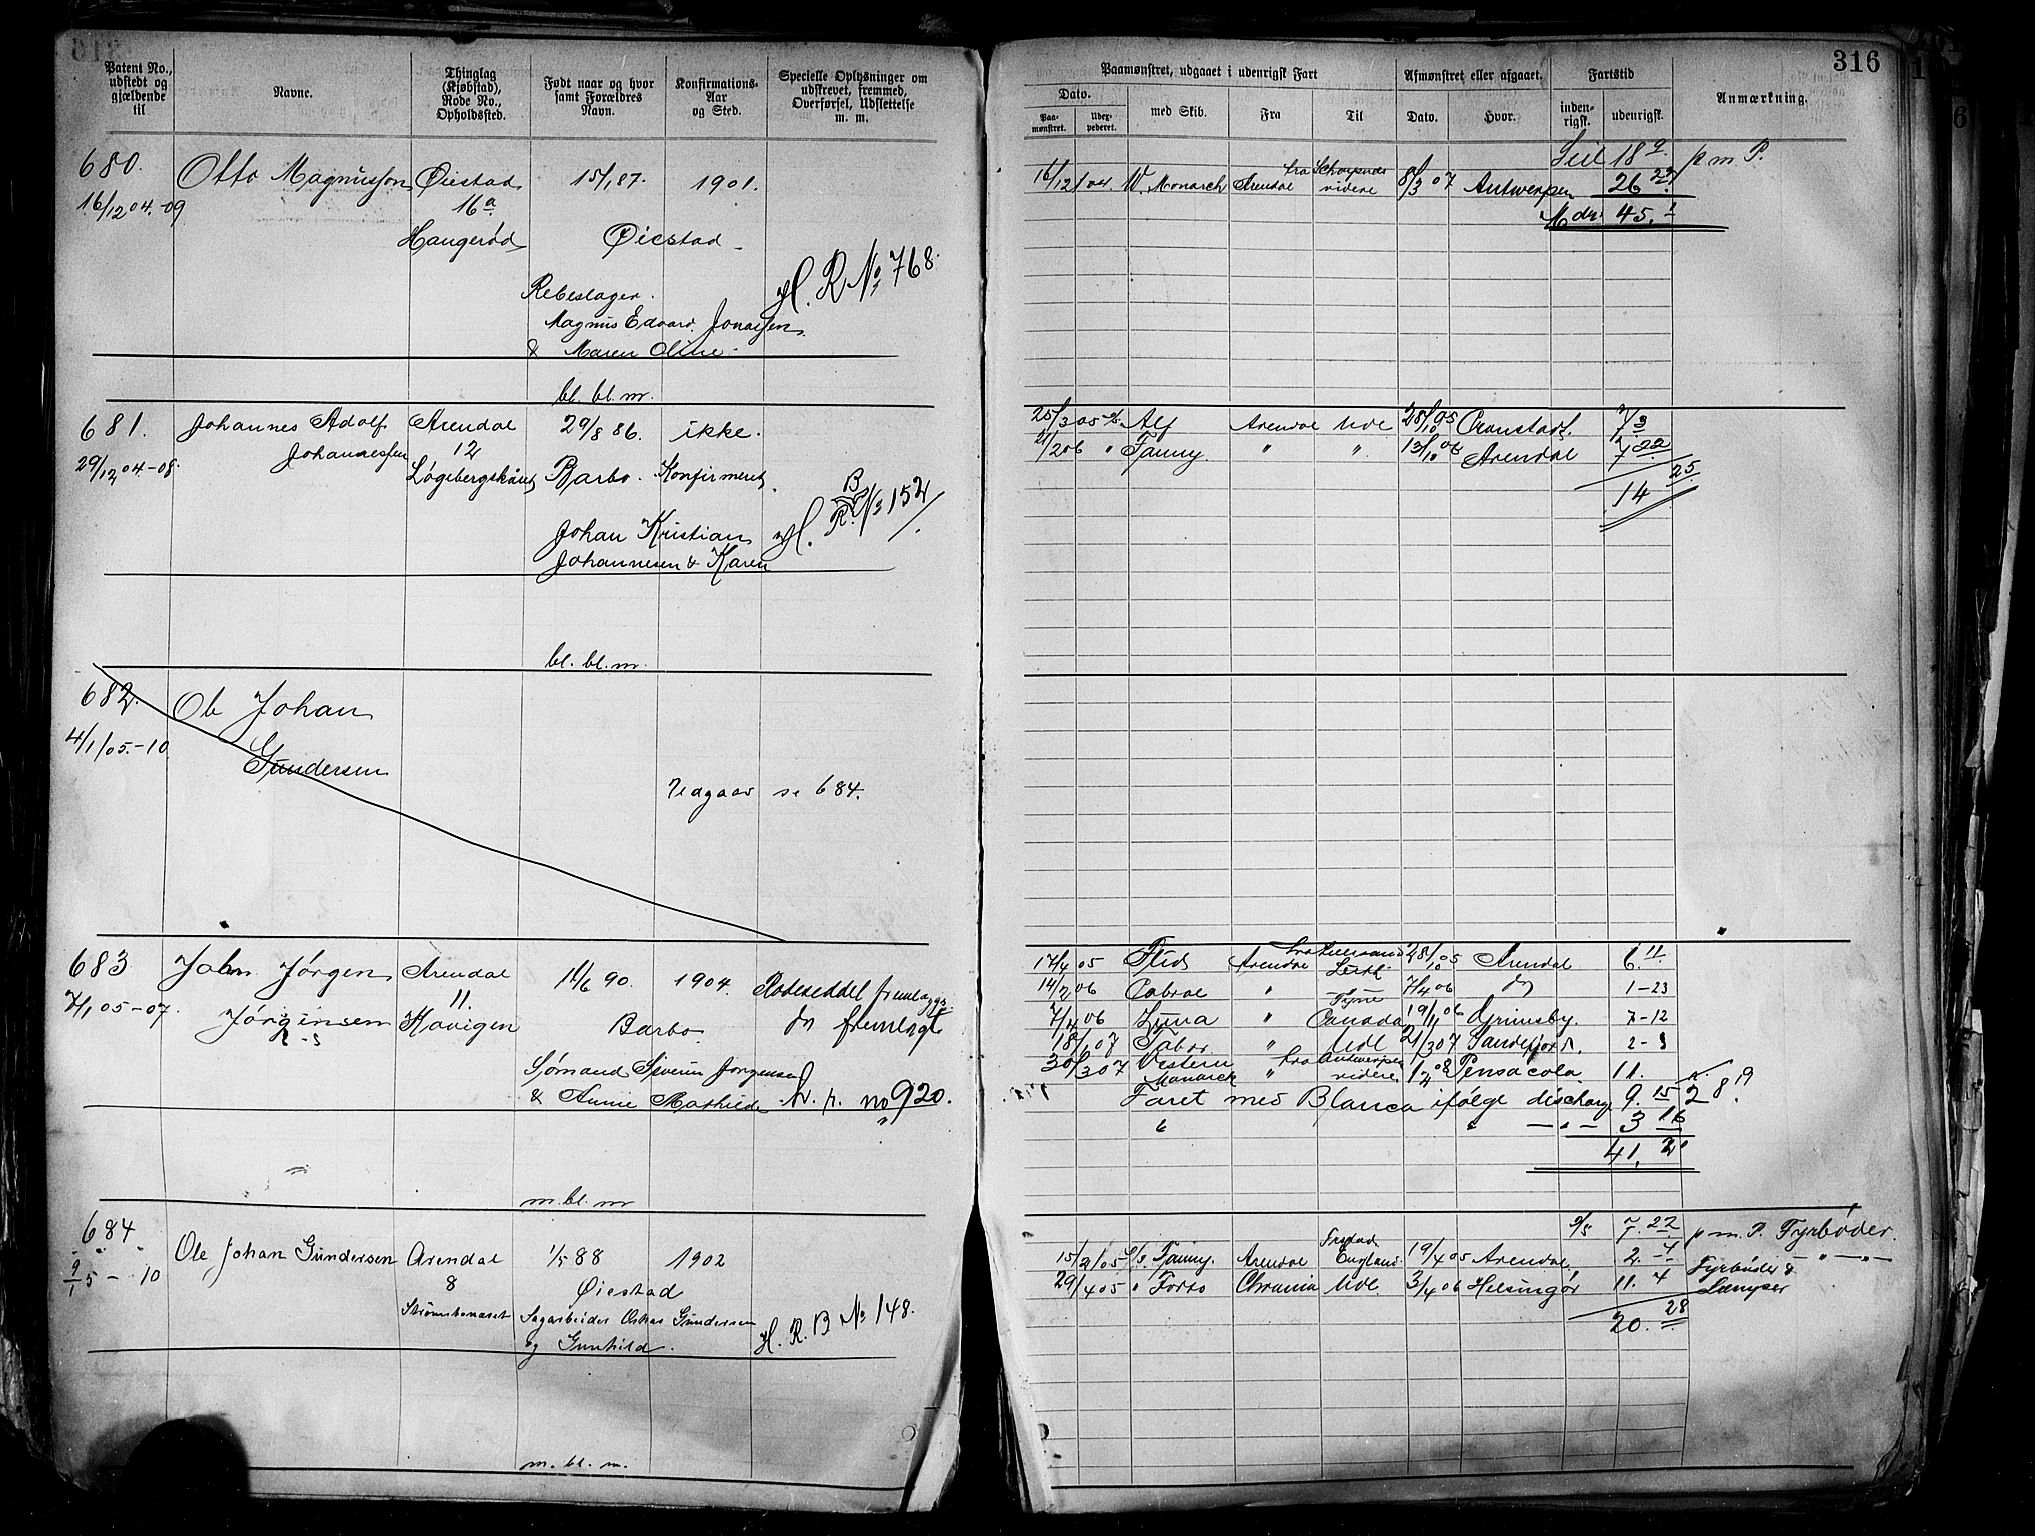 316
Patent No., udstedt og gjældende til
Navne.
Thinglag (Kjøbstad), Rode No., Opholdssted.
Født naar og hvor samt Forældres Navn.
Konfirmations-Aar og Sted.
Specielle Oplysninger om udskrevet, fremmed, Overførsel, Udslettelse m. m.
Paamønstret, udgaaet i udenrigsk Fart
Afmønstret eller afgaaet.
Fartstid
Anmærkning.
Dato.
Paa-mønstret.
Udex-pederet.
med Skib.
Fra
Til
Dato.
Hvor.
inden-rigsk.
udenrigsk.
680.
16/12 04.-09
Otto Magnusson
Øiestad
16a
Haugerød
15/1 87.
Øiestad
1901.
Rebeslager.
Magnus Edvard Jonassen
& Maren Oline
H. R No 768.
bl. bl. m.
16/12 04 W. Monarch Arendal fra videre 8/3 07 Antwerpen 26 22
Seil 18 9 p m P.
Mdr. 45. 1
681.
29/12 04-08.
Johannes Adolf
Johannessen
Arendal
12
Løgebergskåret
29/8 86.
Barbo.
ikke
Konfirmeret
Johan Kristian
Johannesen & Karen
H. R. B No 152
bl. bl. m.
25/3 05 Alf Arendal Udl 28/10 05 Cronstadt 7/3
21/2 06 " Fanny " " 13/10 06 Arendal 7 22
14 25
682.
4/1/05.-10
Ole Johan
Gundersen
Udgaar se 684.
683
7/1 05-07
John Jørgen
Jørgensen
Arendal
11.
Havigen
11/6 90.
Barbo
1904.
Rodeseddel fremlægges
do fremlagt
Sømand Severin Jørgensen
& Anne Mathilde
h. r. no 920.
m. bl. m
17/4 05 Arendal fra 28/10 05 Arendal 6. 11
14/2 06 " Tyne 7/4 06 do 1-23
7/4 06 Luna " Canada 19/11 06 Grimsby. 7-12
18/1 07 Tabor " Udl 21/3 07 Sandefjord. 2-3
30/3 07 Vestern Monarck " fra Antwerpen videre 1/4 08 Pensacola. 11.
Faret med Blanca ifølge discharge 9. 15
" " -"- 3 16
41. 21
684
9/1 5 - 10
Ole Johan Gundersen
Arendal
8
Strømsbonæset
1/5 88
Øiestad
1902
Sagarbeider Oskar Gundersen
og Gunhild.
H. R. B No 148.
m. bl. m.
9/5 7. 22 p m. P. Fyrbøder.
15/2/05 Fanny. Arendal England. 19/4 05 Arendal 2. 4 - " -
29/4 05 " Forto Chrania Udl 3/4 06 Helsingør 11. 4 Fyrbøder & Lemper
20. 28